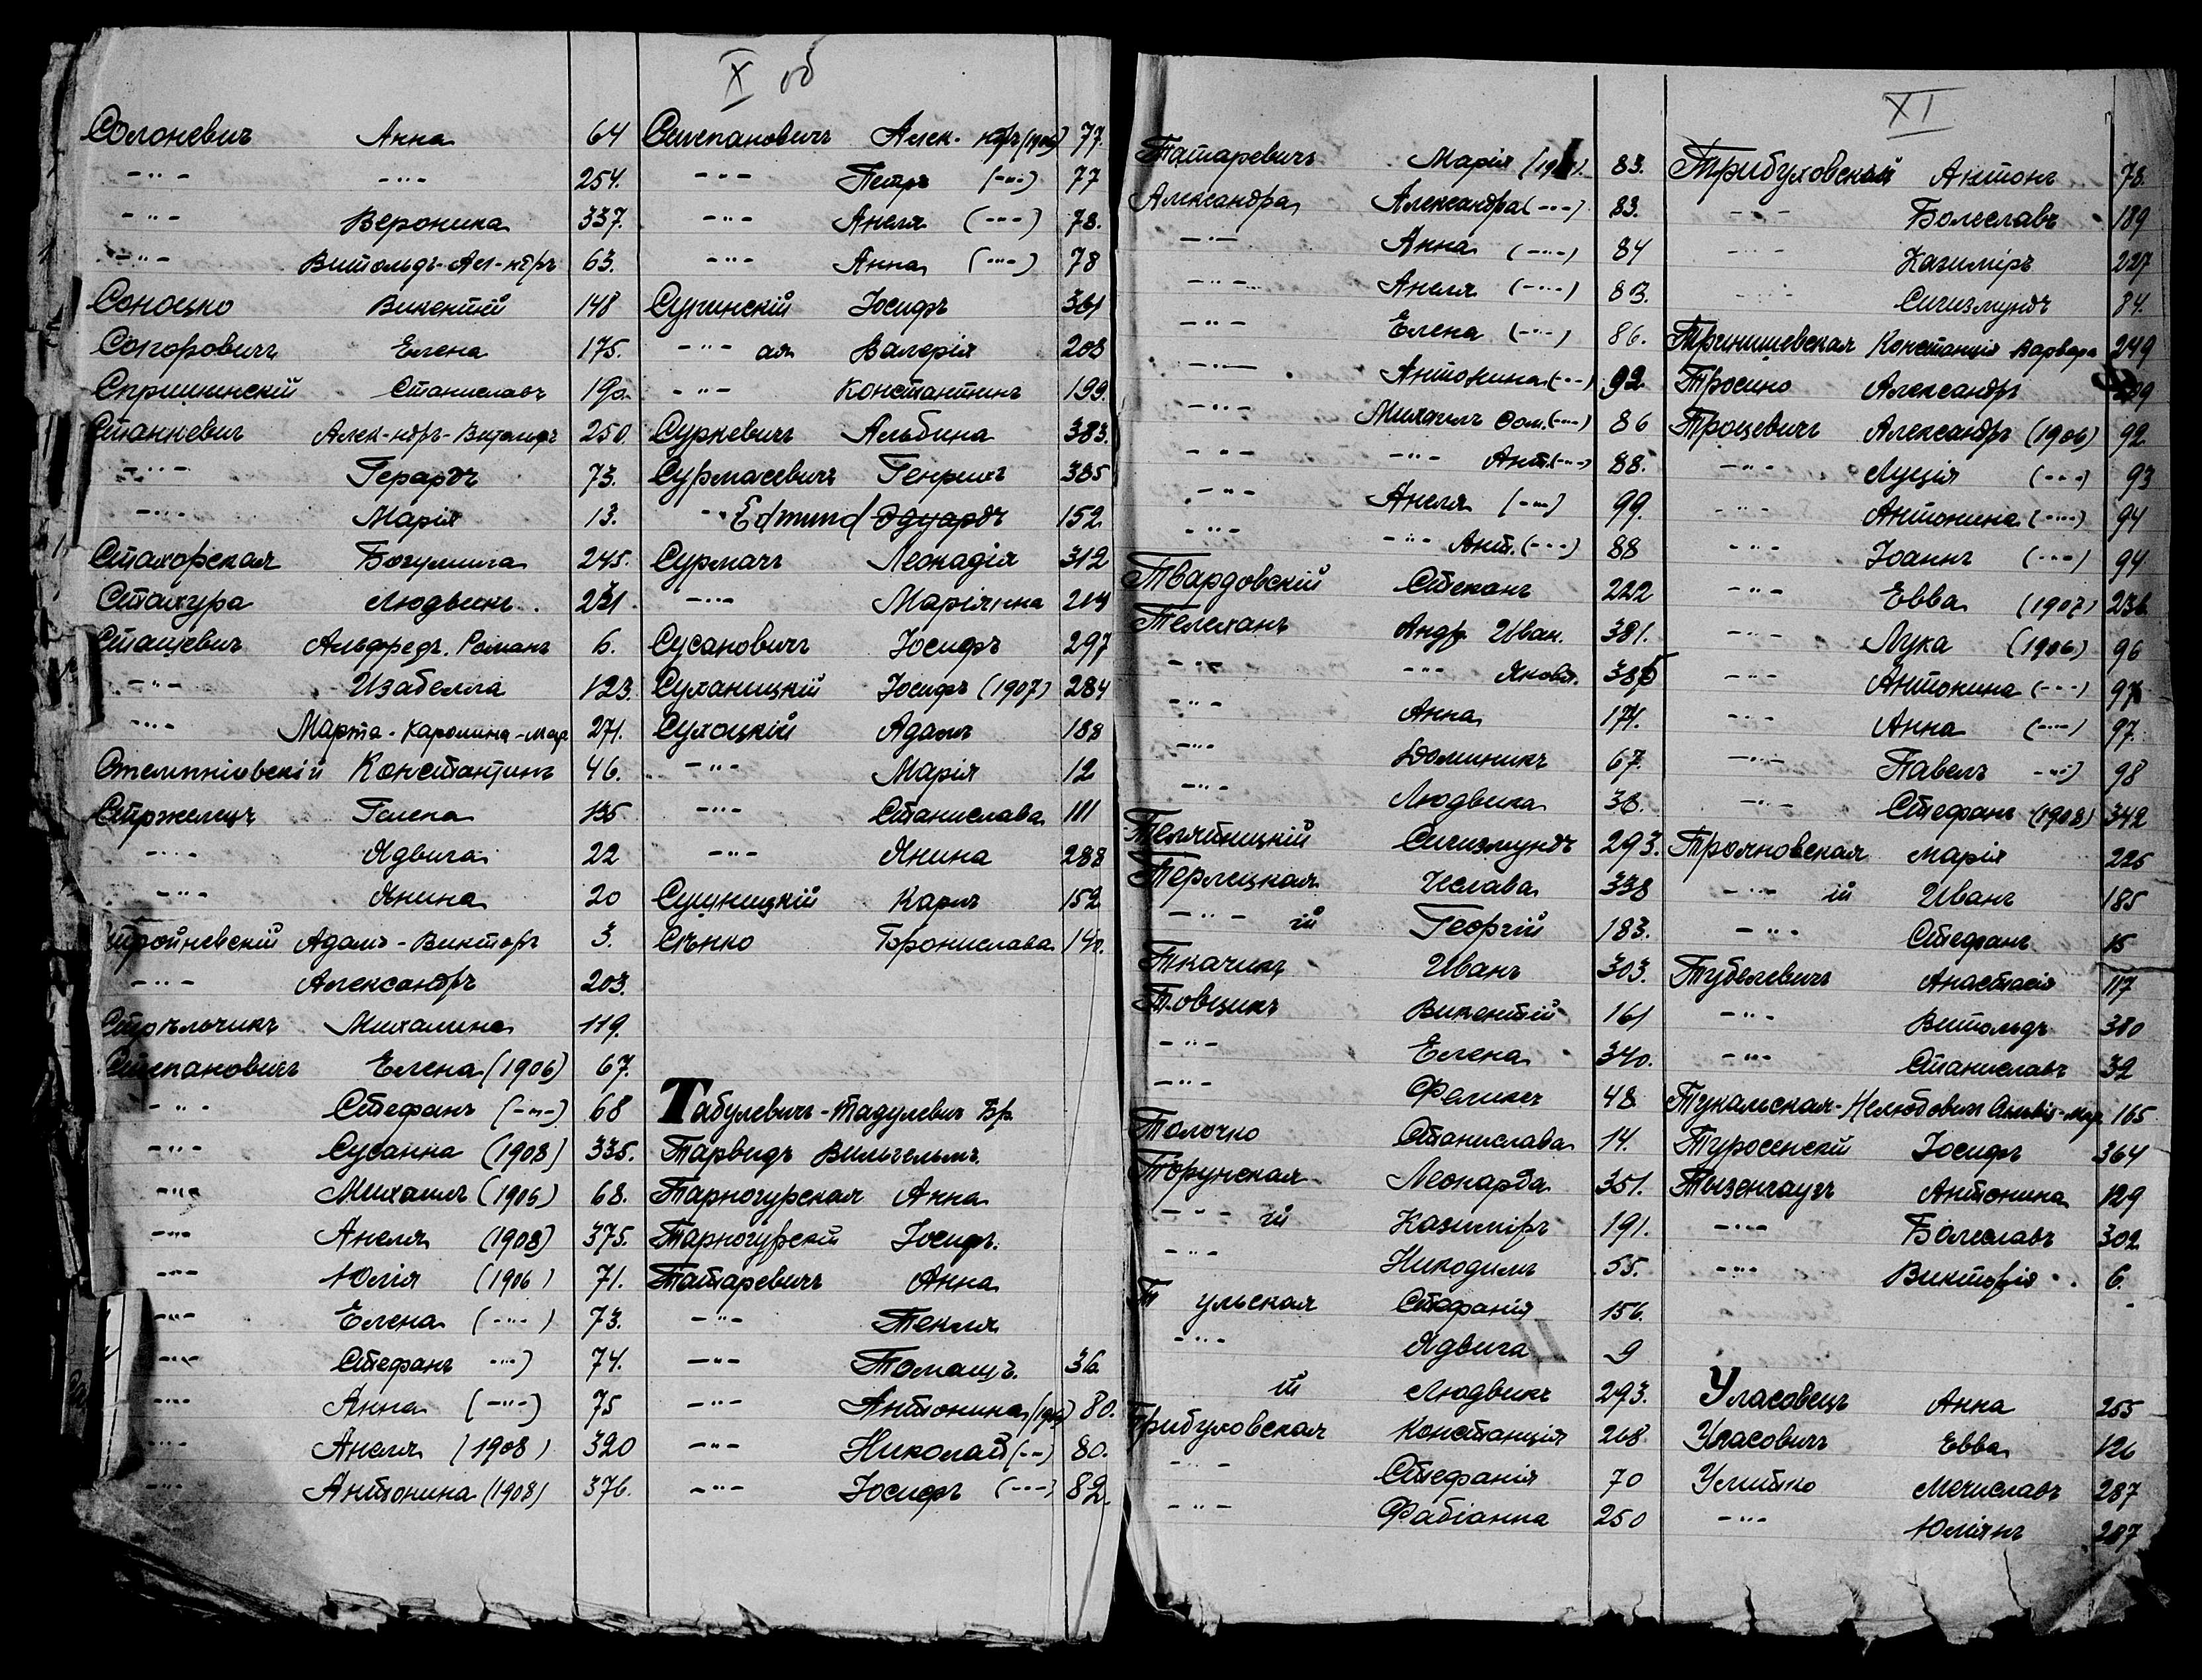 X об
Солоневичъ Анна 64
-"- -"- 254.
-"- Вероника 337.
-"- Витольдъ-Ал-ндръ 63.
Соноцко Викентій 148
Сопоровичъ Елена 175.
Спришинскій Станиславъ 190.
Станкевичъ Алек-ндръ-Витольдъ 250
-"- Герардъ 73.
-"- Марія 13.
Стахорская Богумила 245.
Стахура Людвикъ 231
Сташевичъ Альфредъ. Романъ 6.
-"- Изабелла 123.
-"- Марта-Каролина-Мар. 271.
Стемпніовскій Константинъ 46.
Стржелецъ Гелена 135
-"- Ядвига 22
-"- Янина 20
Стройневскій Адамъ-Викторъ 3.
-"- Александръ 203.
Стрѣльчикъ Михалина 119.
Степановичъ Елена (1906) 67.
-"- Стефанъ (-"-) 68
-"- Сусанна (1908) 335.
-"- Михаилъ (1906) 68.
-"- Анеля (1908) 375.
-"- Юлія (1906) 71.
-"- Елена (-"-) 73.
-"- Стефанъ -"-) 74.
-"- Анна (-"-) 75
-"- Анеля (1908) 320
-"- Антонина (1908) 376.
Степановичъ Алек-ндръ (1906) 77.
-"- Петръ (-"-) 77
-"- Анеля (-"-) 78.
-"- Анна (-"-) 78
Сугинскій Іосифъ 361
-"- ая Валерія 208
-"- Константинъ 199.
Суркевичъ Альбина 383.
Сурмасевичъ Генрихъ 385
-"- Edmund Эдуардъ 152
Сурмачъ Леокадія 312
-"- Маріянна 214
Сусановичъ Іосифъ 297
Суханицкій Іосифъ (1907) 284
Сухоцкій Адамъ 188
-"- Марія 12
-"- Станислава 111
-"- Янина 288
Сушницкій Карлъ 152
Сѣнко Бронислава 140.
Табулевичъ-Тадулевич Бр.
Тарвидъ Вильгельмъ.
Тарногурская Анна
Тарногурскій Іосифъ.
Татаревичъ Анна
-"- Текля
-"- Томашъ. 36
-"- Антонина (1906) 80.
-"- Николай (-"-) 80.
-"- Іосифъ (-"-) 82.
XI
Татаревичъ Марія 83.
Александра Александра (-"-) 83.
-"- Анна (-"-) 84
-"- Анеля (-"-) 83.
-"- Елена (-"-) 86.
-"- Антонина (-"-) 92
-"- Михаилъ Дом. (-"-) 86
-"- -"- Ант. (-"-) 88.
-"- Анеля (-"-) 99.
-"- -"- Ант. (-"-) 88
Твардовскій Стефанъ 222
Телеханъ Андр. Иван. 381.
-"- -"- Яковл. 385
-"- Анна 171.
-"- Доминикъ 67.
-"- Людвика 38.
Телятицкій Сигизмундъ 293.
Терлецкая Чеслава 338
-"- ій Георгій 183.
Ткачикъ Иванъ 303.
Товцикъ Викентій 161
-"- Елена 340.
-"- Феликсъ 48
Толочко Станислава 14.
Торунская Леонарда 351.
-"- ій Казиміръ 191.
-"- Никодимъ 55.
Т ульская Стефанія 156.
-"- Ядвига 9
ій Людвикъ 293.
Трибуховская Констанція 268
-"- Стефанія 70
-"- Фабіанна 250
Трибуховскій Антонъ 78.
-"- Болеславъ 189
-"- Казиміръ 227
-"- Сигизмундъ 84.
Тринишевская Констанція Варвара 249
Тросино Александръ
Троцевичъ Александръ (1906) 92
-"- Луція (-"-) 93
-"- Антонина (-"-) 94
-"- Іоаннъ (-"-) 94
-"- Евва (1907) 236
-"- Лука (1906) 96
-"- Антонина (-"-) 97
-"- Анна (-"-) 97.
-"- Павелъ -"-) 98
-"- Стефанъ (1908) 342
Трояновская Марія 225
-"- ій Иванъ 185
-"- Стефанъ 15
Тубелевичъ Анастасія 117
-"- Витольдъ 380
-"- Станиславъ 32
Тукальская-Нелюбович 165
Туросенскій Іосифъ 364
Тызенгаузъ Антонина 129
-"- Болеславъ 302
-"- Викторія 6.
Уласовецъ Анна 255
Уласовичъ Евва 126
Улитко Мечиславъ 287
-"- Юліянъ 287